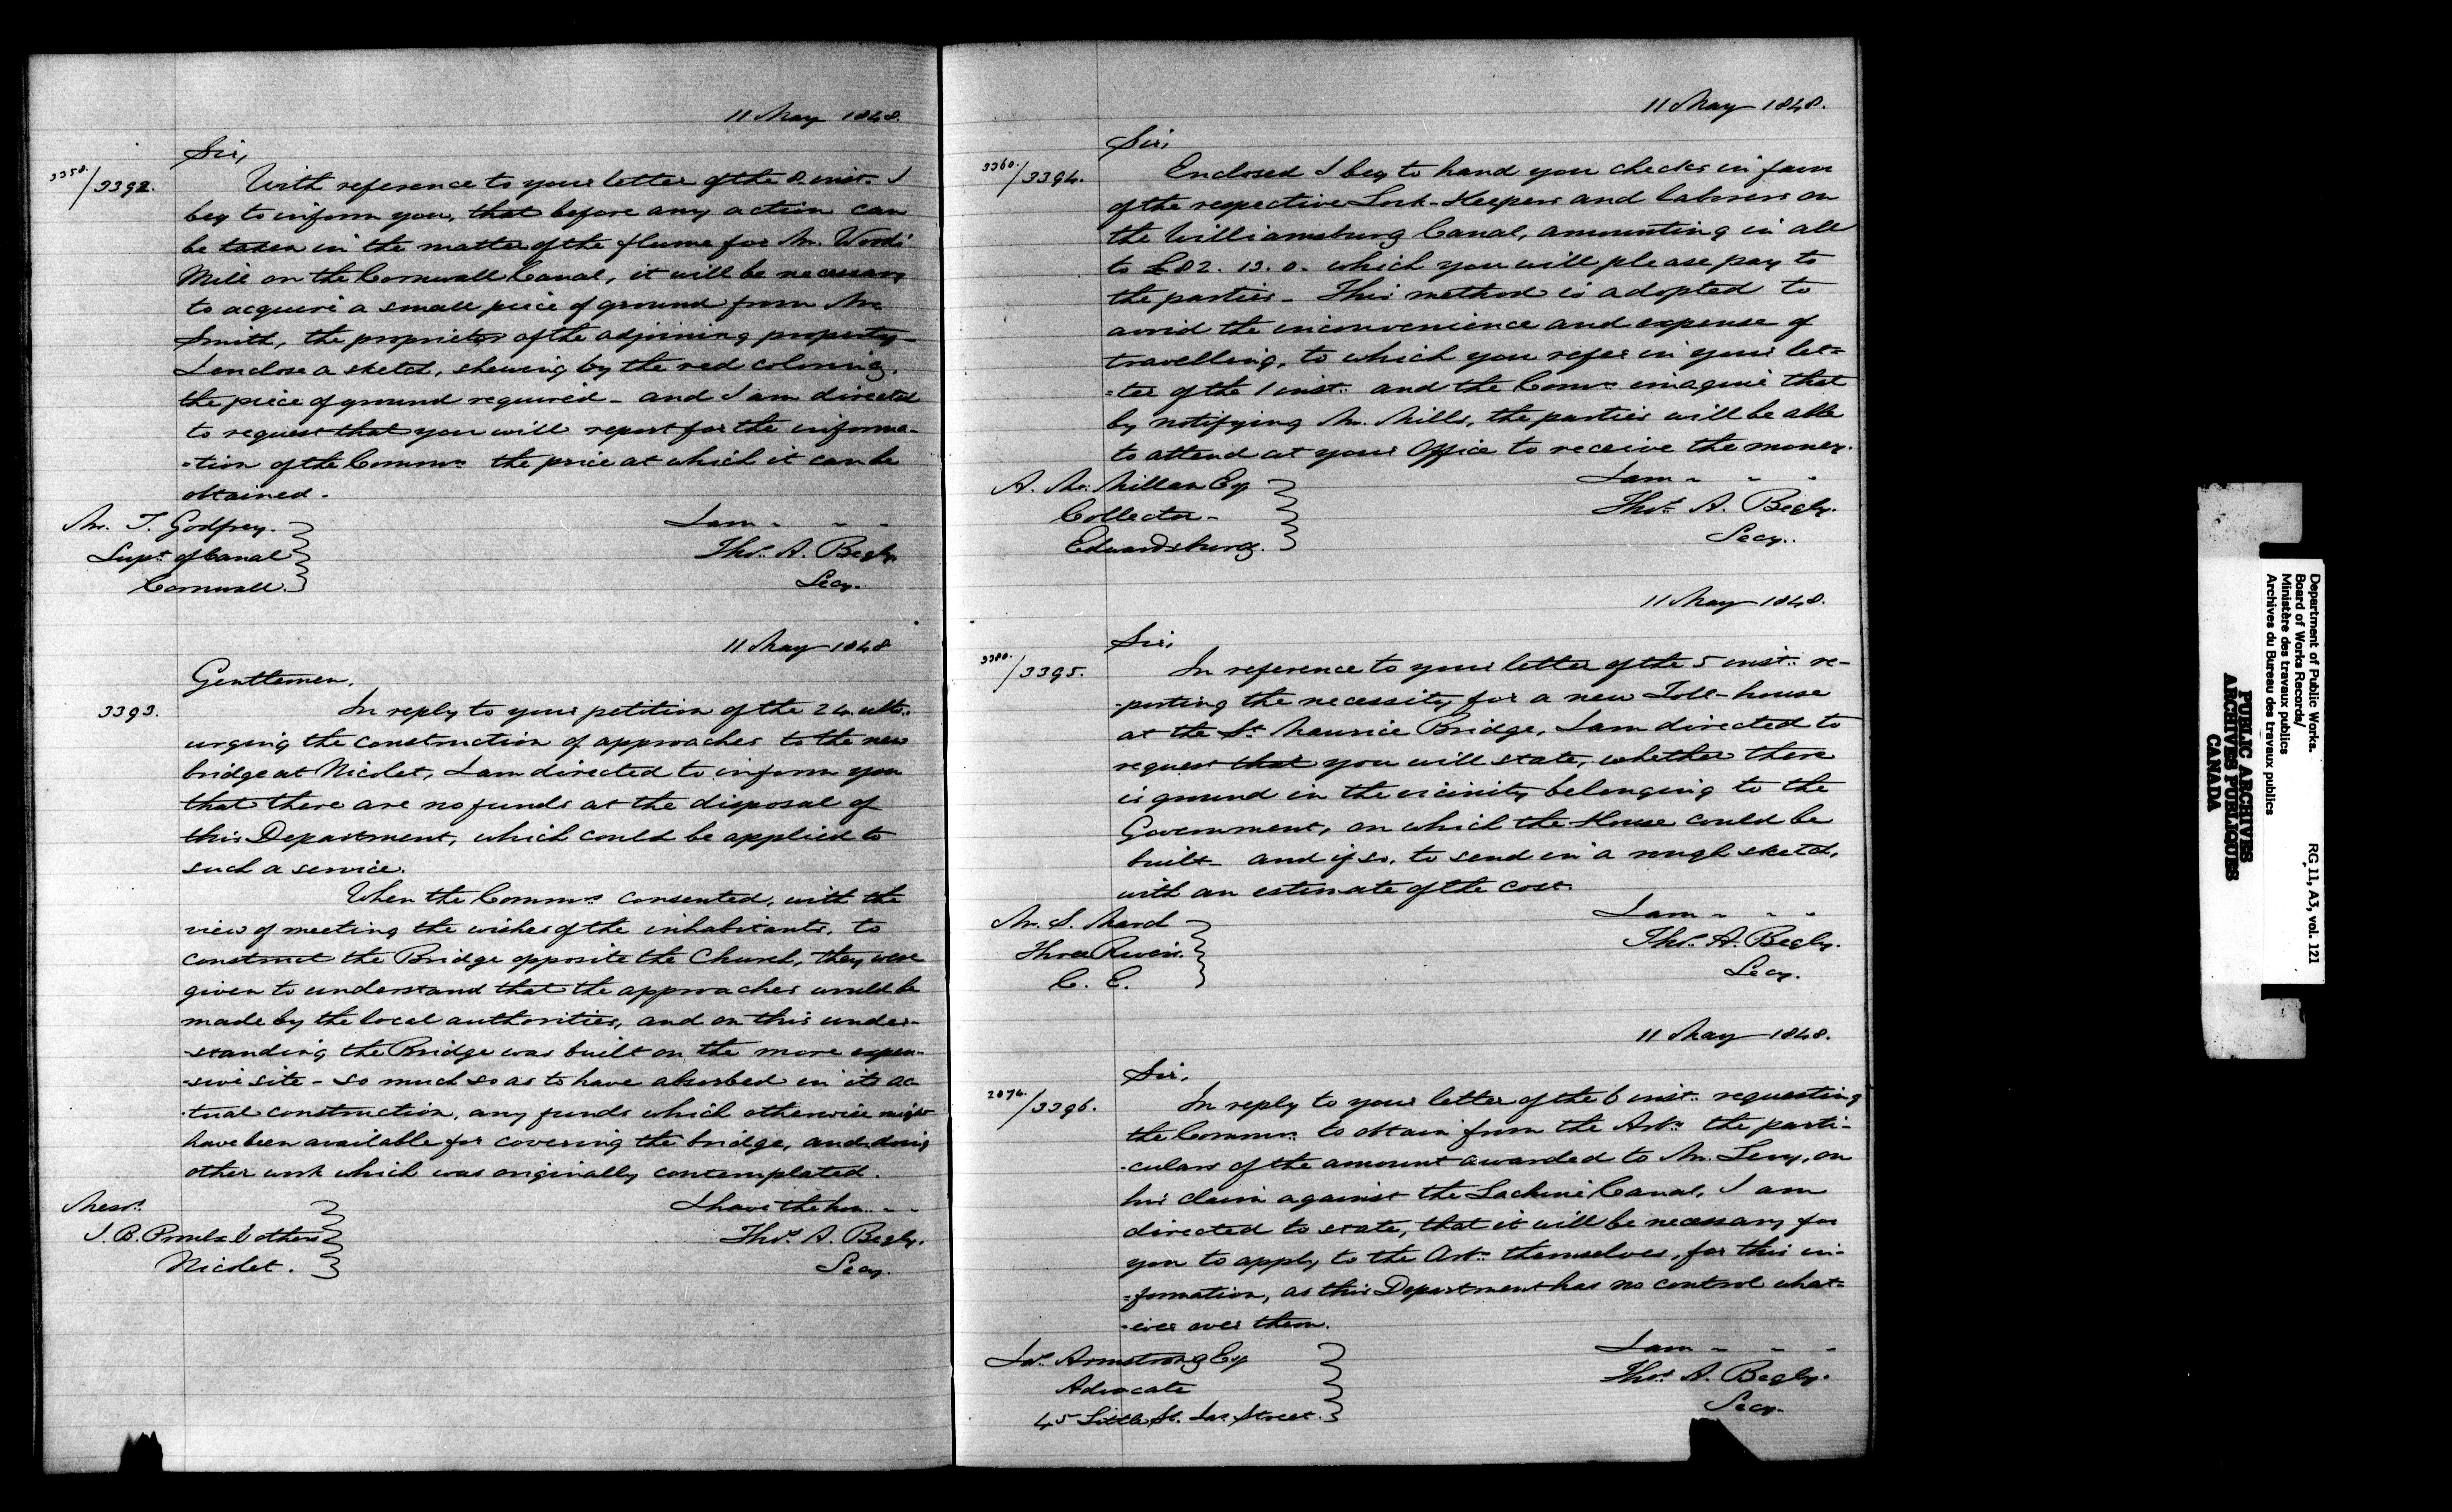 11 May 1848.
Sir,
3358./3392. With reference to your letter of the 8. inst. I
beg to inform you, that before any action can
be taken in the matter of the flume for Mr. Woods'
Mill on the Cornwall Canal, it will be necessary
to acquire a small piece of ground from Mr.
Smith, the proprietor of the adjoining property_
I enclose a sketch, shewing by the red coloring,
the piece of ground required _ and I am directed
to request that you will report for the informa-
-tion of the Commrs. the price at which it can be
obtained.
Mr. T. Godfrey. I am - - -
Supt. of Canal Thos. A. Begly.
Cornwall. Secy.
11 May 1848
Gentlemen,
3393. In reply to your petition of the 24. ulto.
urging the construction of approaches to the new
bridge at Nicolet, I am directed to inform you
that there are no funds at the disposal of
this Department, which could be applied to
such a service.
When the Commrs. consented, with the
view of meeting the wishes of the inhabitants, to
construct the Bridge opposite the Church, they were
given to understand that the approaches would be
made by the local authorities, and on this under-
-standing the Bridge was built on the more expen-
-sive site - so much so as to have absorbed in its ac-
-tual construction, any funds which otherwise might
have been available for covering the bridge, and doing
other work which was originally contemplated.
Messrs. I have the hon. - -
J. B. & others Thos. A. Begly.
Nicolet. Secy.
11 May 1848.
Sir,
3360./3394. Enclosed I beg to hand you checks in favor
of the respective Lock-Keepers and laborers on
the Williamsburg Canal, amounting in all
to £82. 13. 0. which you will please pay to
the parties _ This method is adopted to
avoid the inconvenience and expense of
travelling, to which you refer in your let=
=ter of the 1 inst. and the Comrs. imagine that
by notifying Mr. Mills, the parties will be able
to attend at your Office to receive the money.
A. McMillan Esq I am - - -
Collector - Thos. A. Begly.
Edwardsburg. Secy.
11 May 1848.
Sir,
3380./3395. In reference to your letter of the 5 inst. re-
-porting the necessity for a new Toll-house
at the St. Maurice Bridge, I am directed to
request that you will state, whether there
is ground in the vicinity belonging to the
Government, on which the House could be
built _ and if so, to send in a rough sketch,
with an estimate of the cost.
Mr. S. I am - - -
Three Rivers. Thos. A. Begly.
C. E. Secy.
11 May 1848.
Sir,
2074./3396. In reply to your letter of the 6 inst. requesting
the Commrs. to obtain from the Arbrs. the parti-
-culars of the amount awarded to Mr. Levy, on
his claim against the Lachine Canal, I am
directed to state, that it will be necessary for
you to apply to the Arbrs. themselves, for this in-
=formation, as this Department has no control what=
-ever over them.
Jas. Armstrong Esq I am - - -
Advocate Thos. A. Begly.
45 Little St. Jas. Street. Secy.
Department of Public Works.
Board of Works Records/
Ministère des travaux publics
Archives du Bureau des travaux publics
RG 11, A3, vol. 121
PUBLIC ARCHIVES
ARCHIVES PUBLIQUES
CANADA